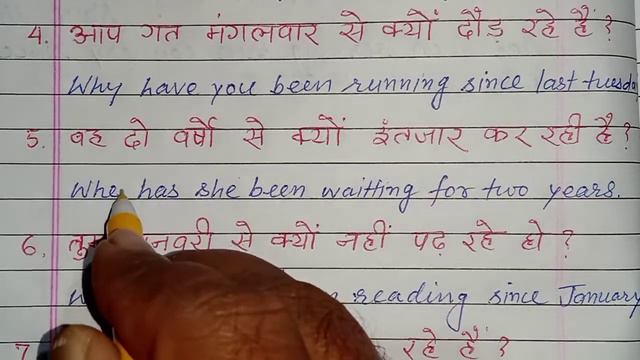 4. आप गत मंगलवार से क्यों दौड़ रहे हैं ?
Why have you been running since last tuesda
5. वह दो वर्षों से क्यों इंतजार कर रही है ?
Whe has she been waitting for two years.
6. से क्यों नहीं पढ़ रहे हो ?
reading since January
7 रहे हैं ?